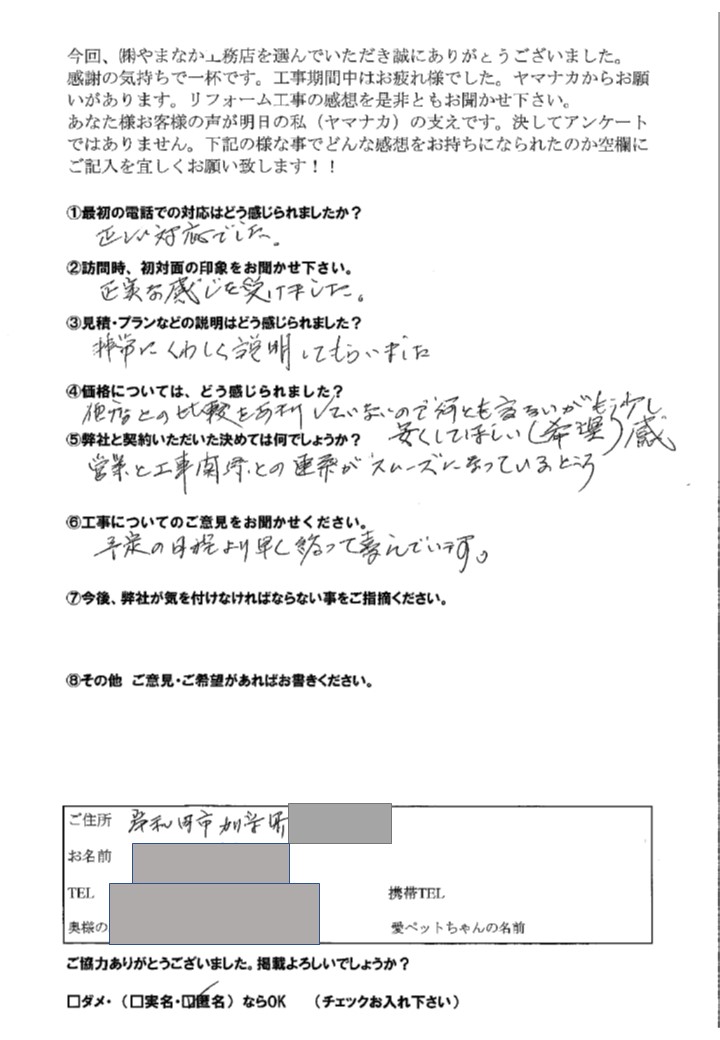 今回、㈱やまなか工務店を選んでいただき誠にありがとうございました。
感謝の気持ちで一杯です。工事期間中はお疲れ様でした。ヤマナカからお願
いがあります。リフォーム工事の感想を是非ともお聞かせ下さい。
あなた様お客様の声が明日の私（ヤマナカ）の支えです。決してアンケート
ではありません。下記の様な事でどんな感想をお持ちになられたのか空欄に
ご記入を宜しくお願い致します！！
①最初の電話での対応はどう感じられましたか？
正しい対応でした。
②訪問時、初対面の印象をお聞かせ下さい。
正実な感じを受けました。
③見積・プランなどの説明はどう感じられましたか？
非常にくわしく説明してもらいました
④価格については、どう感じられましたか？
他店との比較を あまり していないので何とも言ないがもう少し
安くしてほしい（希望）感
⑤弊社と契約いただいた決めては何でしょうか？
営業と工事関係との連系がスムーズになっているところ
⑥工事についてのご意見をお聞かせください。
予定の日程より早く終って喜んでいます。
⑦今後、弊社が気を付けなければならない事をご指摘ください。
⑧その他 ご意見・ご希望があればお書きください。
ご住所 岸和田市
お名前
TEL 携帯TEL
奥様の 愛ペットちゃんの名前
ご協力ありがとうございました。掲載よろしいでしょうか？
□ダメ・（□実名・☑匿名）ならOK （チェックお入れ下さい）